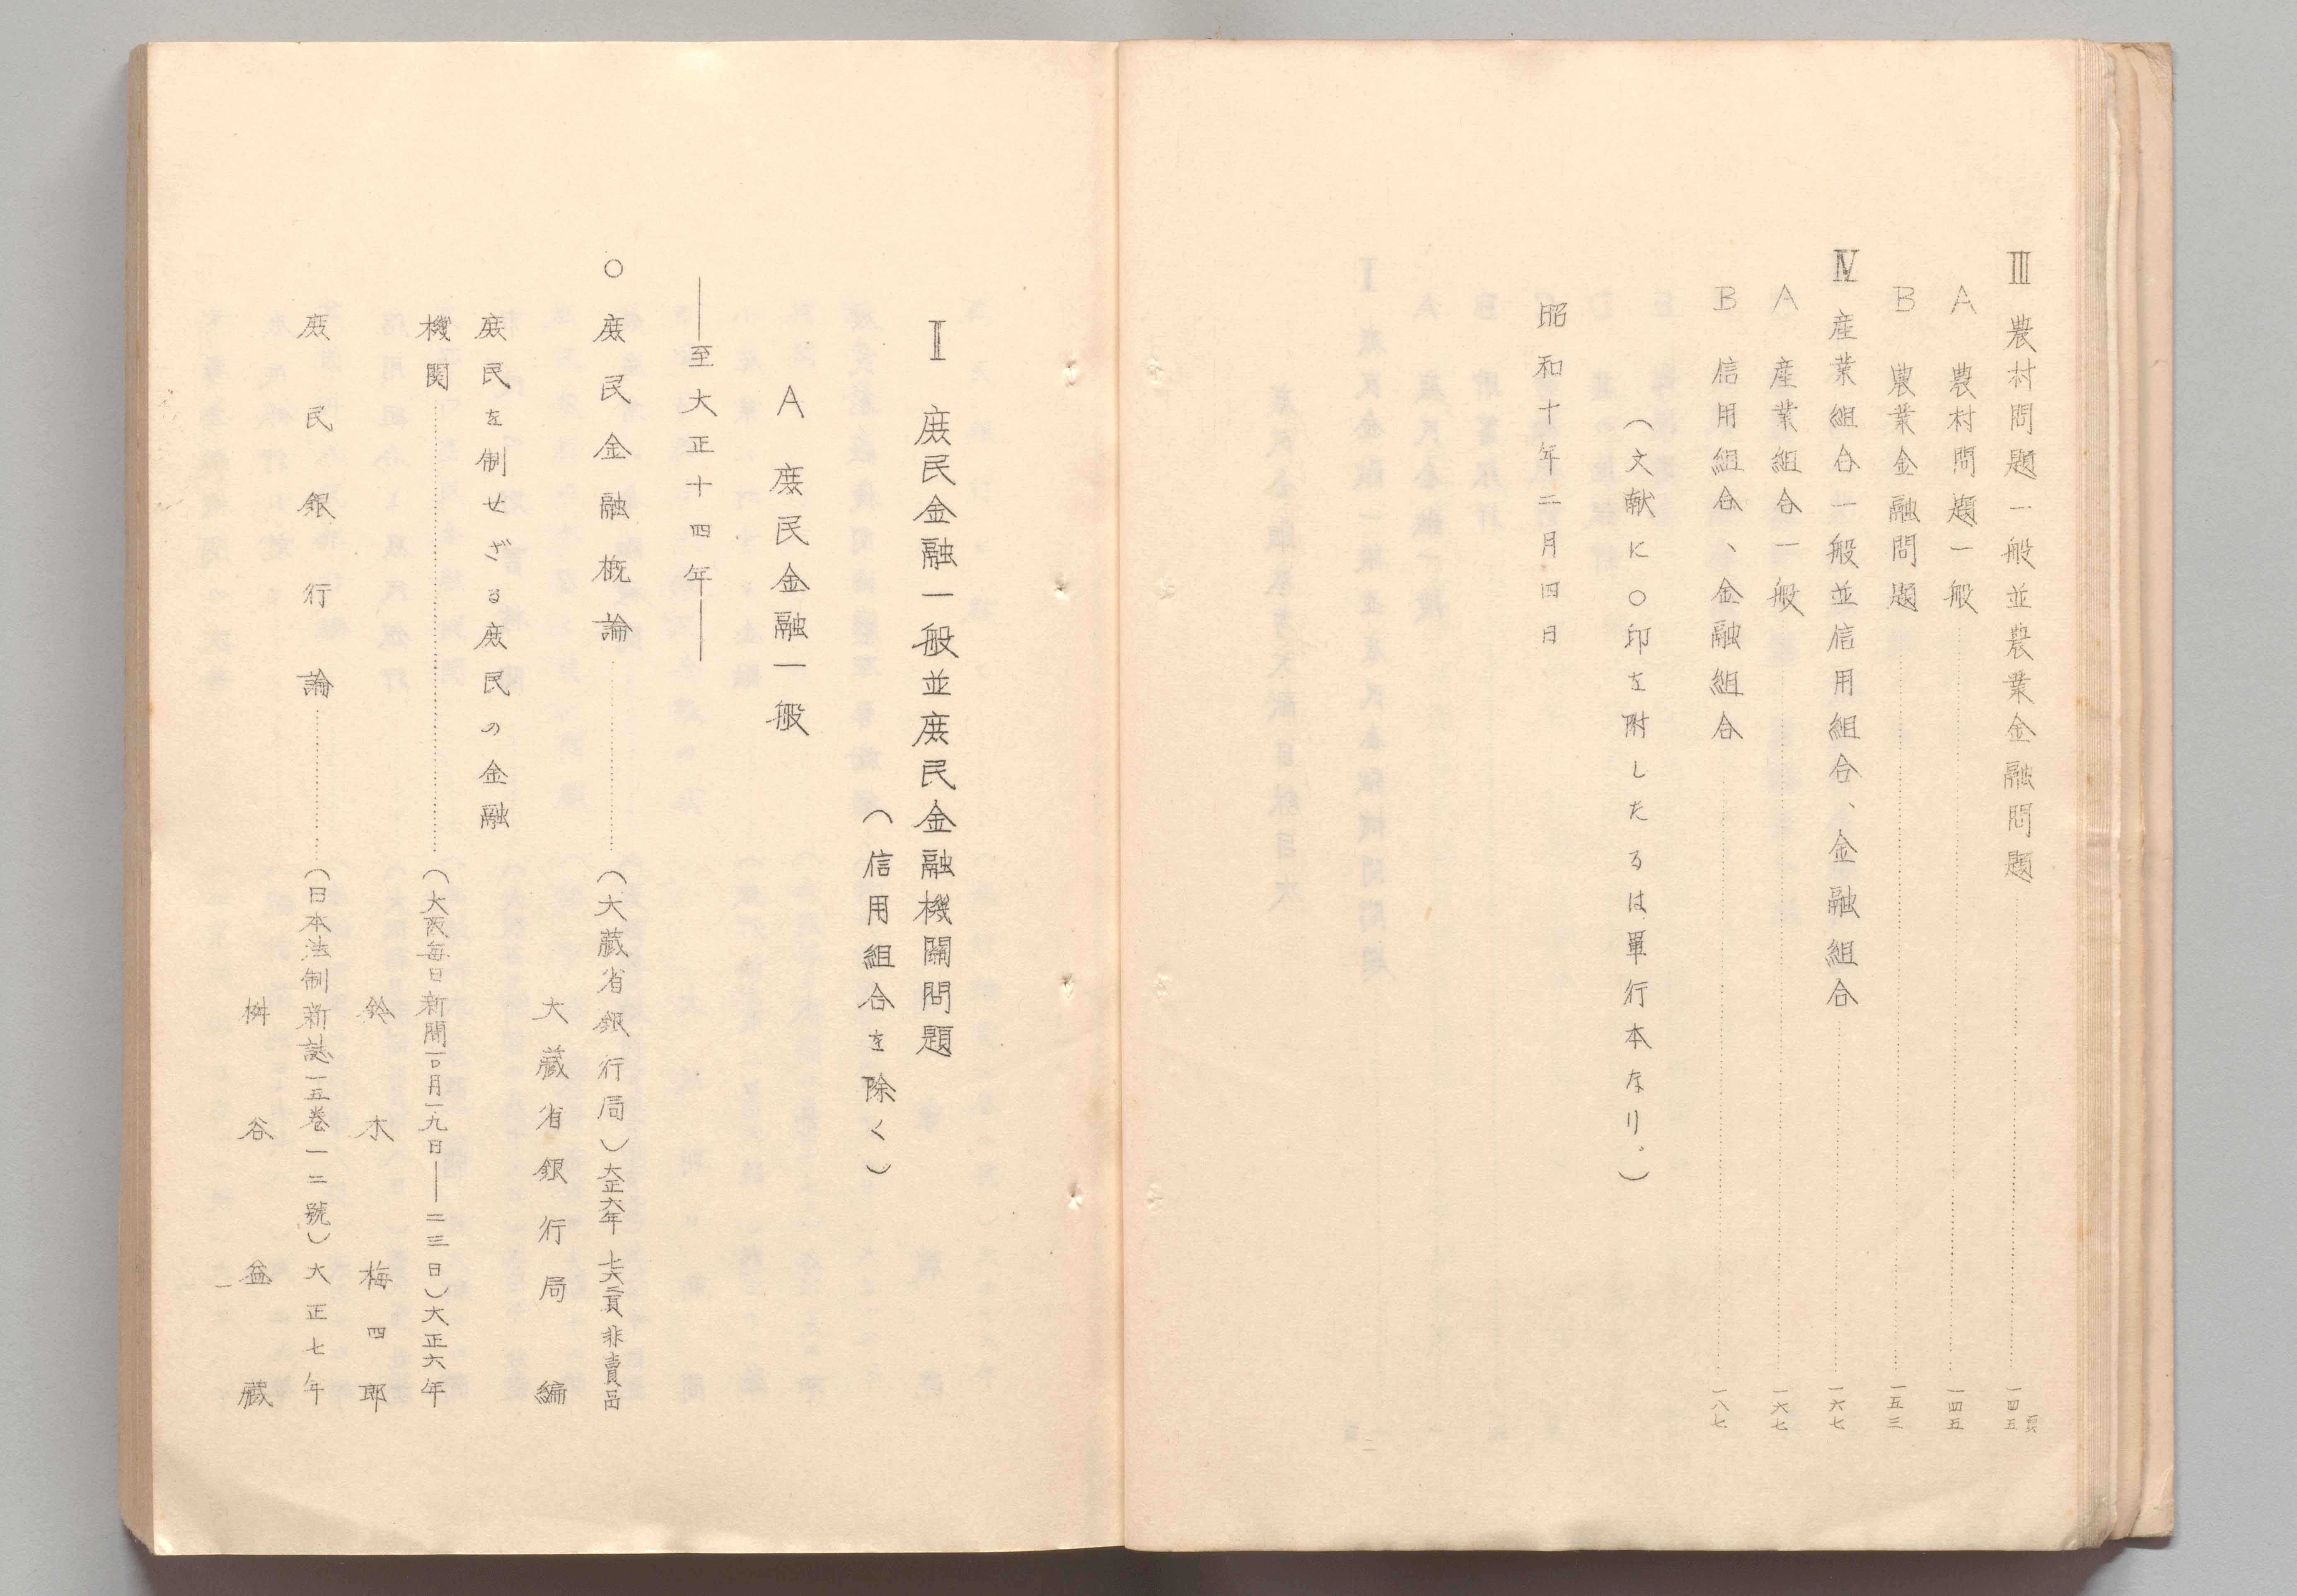 III 農村問題一般並農業金融問題……一四五頁
A 農村問題一般……一四五
B 農業金融問題……一五三
IV 産業組合一般並信用組合、金融組合……一六七
A 産業組合一般……一六七
B 信用組合、金融組合……一八七
(文献に○印を附したるは單行本なり。)
昭和十年二月四日
二
I 庶民金融一般並庶民金融機關問題
(信用組合を除く)
A 庶民金融一般
——至大正十四年——
○庶民金融概論……(大藏省銀行局)大正六年 七六三頁 非賣品
大藏省銀行局編
庶民を制せざる庶民の金融
機関……(大阪毎日新聞一〇月一九日——二三日)大正六年
鈴木梅四郎
庶民銀行論……(日本法制新誌一五巻一二號)大正七年
桝谷益藏
一